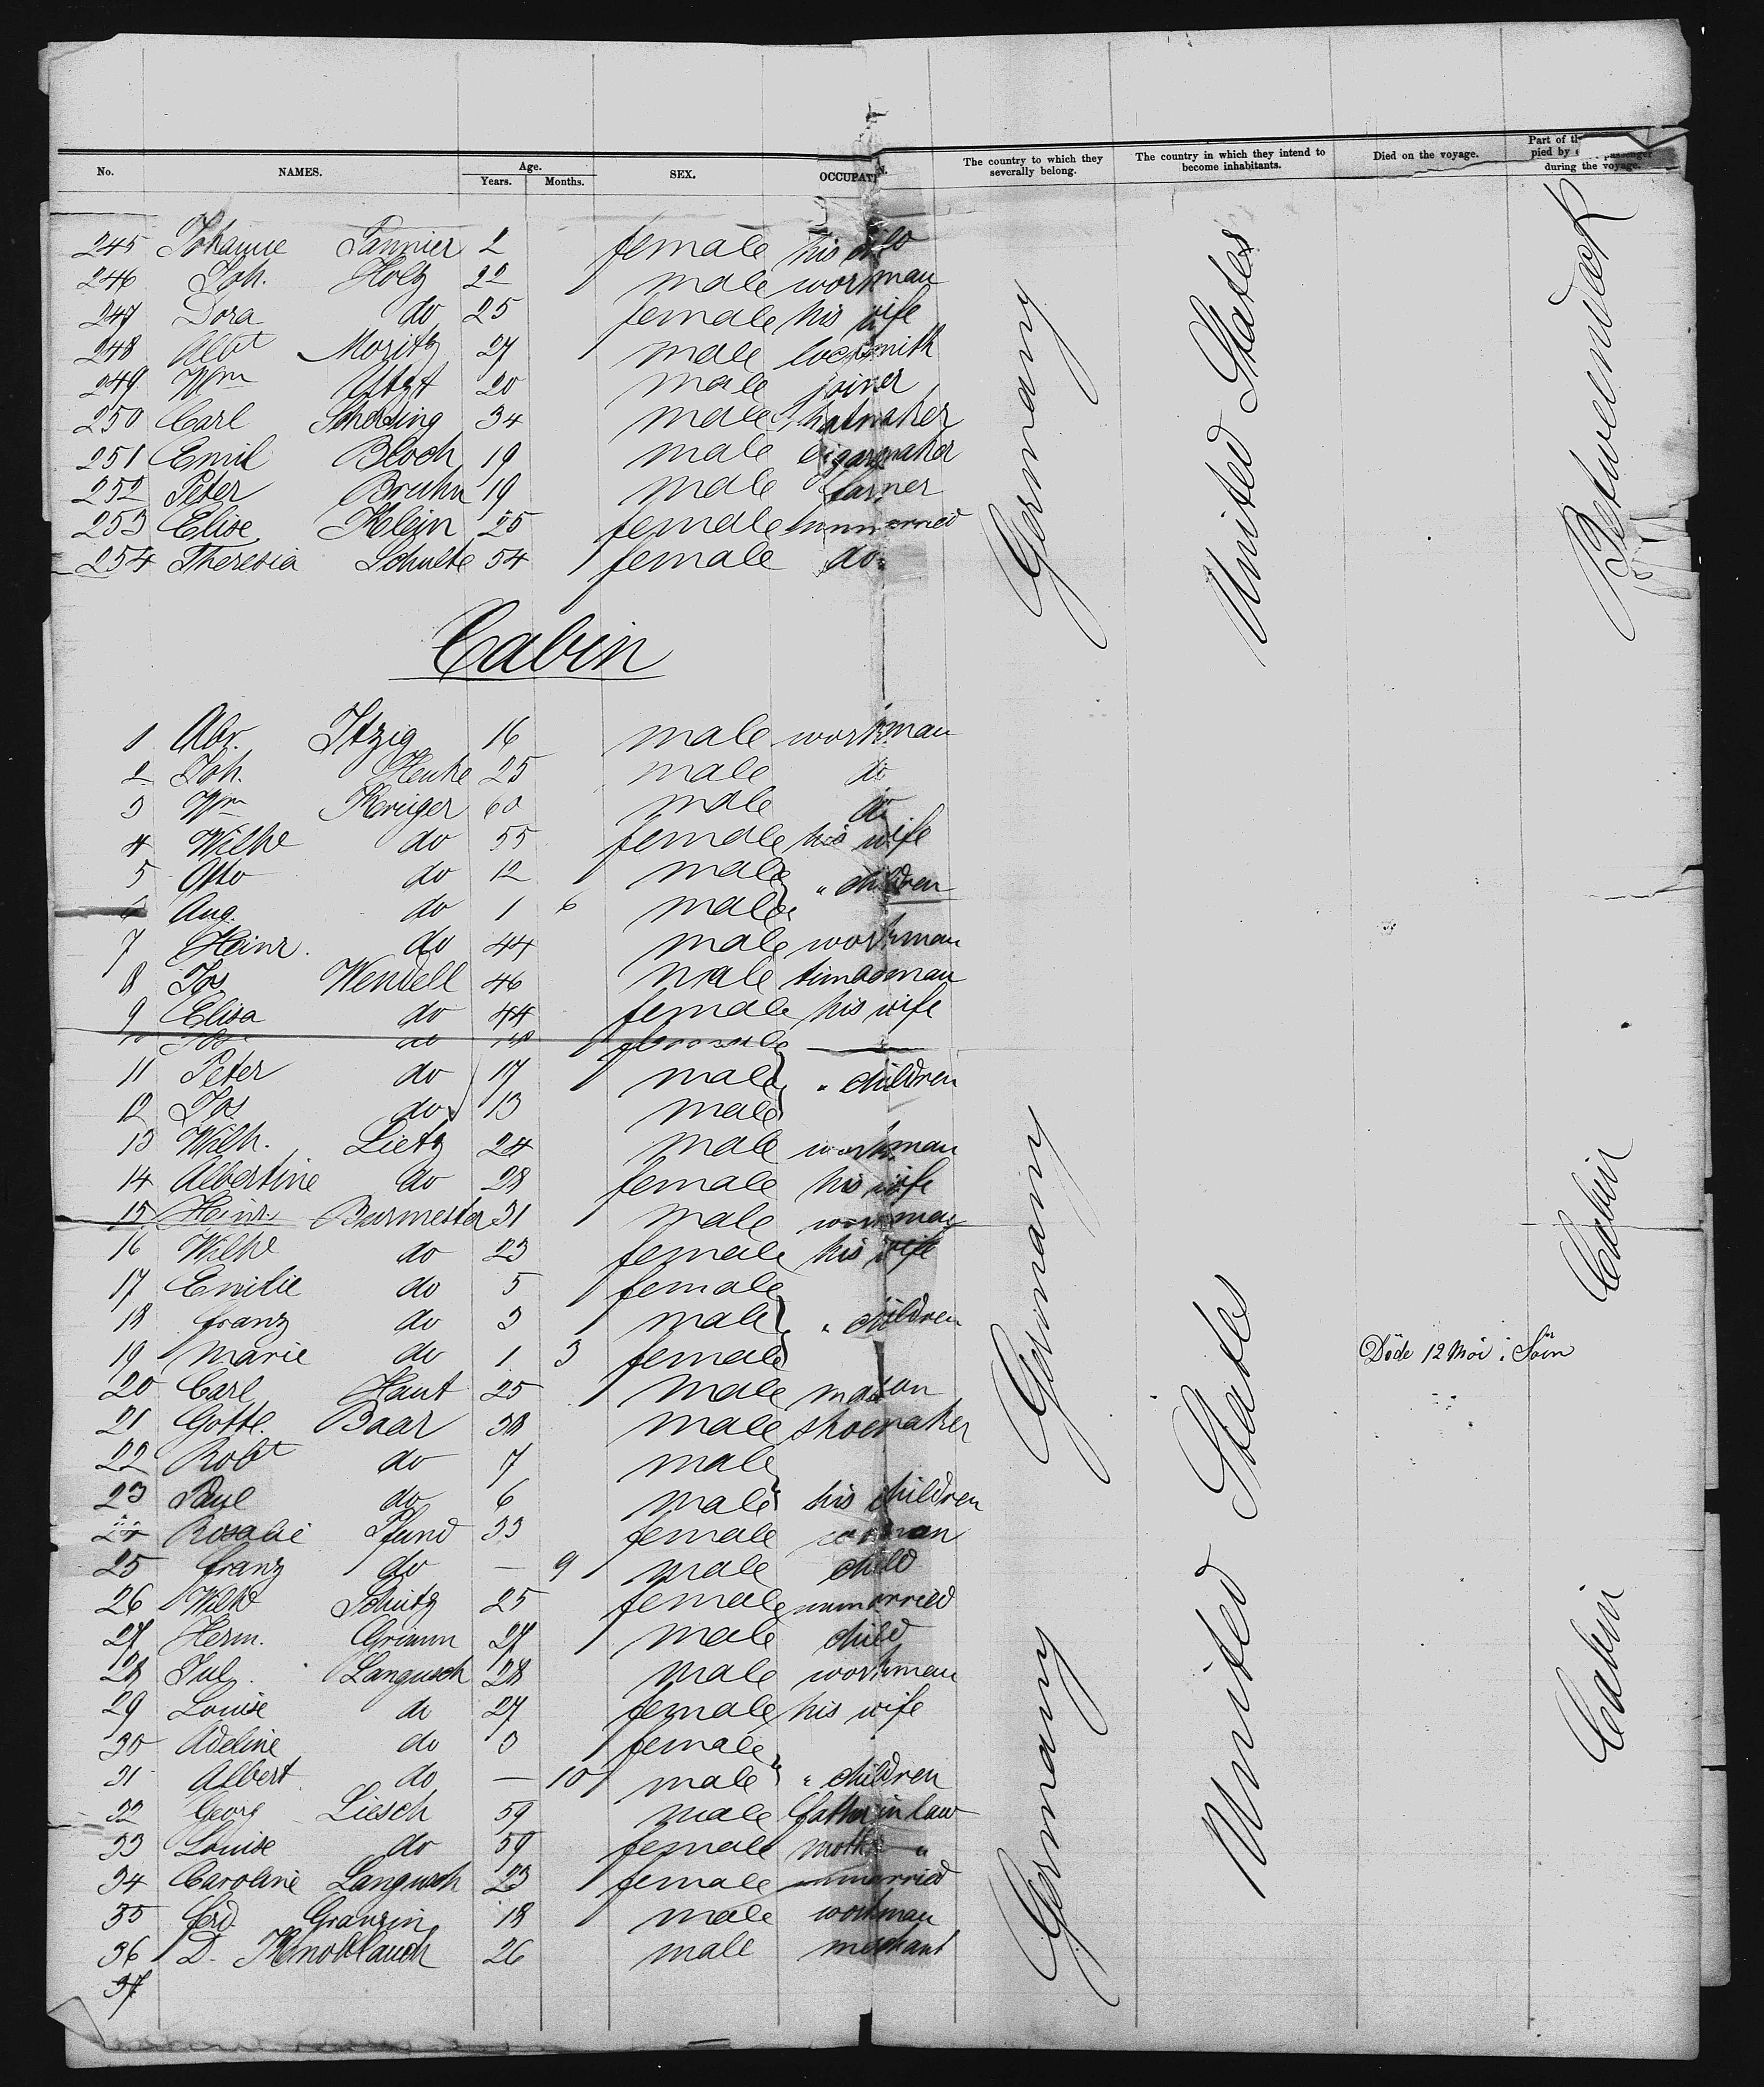 No. NAMES. Age. Years. Months. SEX. OCCUPATI N. The country to which they severally belong. The country in which they intend to become inhabitants. Died on the voyage. Part of th pied by passenger during the voyage.
245 Johanne Pannier 2 female his
246 Joh. Holz 22 male workman
247 Dora do 25 female his wife
248 Albt Moritz 27 male locksmith
249 Wm 20 male joiner
250 Carl 34 male hatmaker
251 Emil Bloch 19 male cigarmaker
252 Peter Bruhn 19 male farmer
253 Elise Klein 25 female unmarried
254 Theresia Schulte 54 female do
Germany
United States
Betweendeck
Cabin
1 Abr. Itzig 16 male workman
2 Joh. Henke 25 male do
3 Wm Krüger 60 male do
4 Wilhe do 55 female his wife
5 Otto do 12 male
6 Aug. do 1 6 male " children
7 Heinr. do 44 male workman
8 Jos Wendell 46 male
9 Elisa do 44 female his wife
10 do female
11 Peter do 17 male " children
12 Jos. do 13 male
13 Wilh. Lietz 24 male workman
14 Albertine do 28 female his wife
15 Heinr. Burmester 31 male workman
16 Wilhe do 23 female his wife
17 Emilie do 5 female
18 Franz do 3 male " children
19 Marie do 1 3 female Döde 12 Mai i Söen
20 Carl Haut 25 male mason
21 Gottl. Baar 38 male shoemaker
22 Robt do 7 male
23 Paul do 6 male his children
24 Rosalie Pfund 33 female woman
25 Franz do — 9 male child
26 Wilhe Schütz 25 female unmarried
27 Herm. Grimm 27 male child
28 Jul. Langusch 28 male workman
29 Louise do 27 female his wife
30 Adeline do 3 female
31 Albert do — 10 male " children
32 Georg Liesch 59 male father in law
33 Louise do 59 female mother — "
34 Caroline Langusch 23 female unmarried
35 Frd. Granzin 18 male workman
36 D. Knoblauch 26 male merchant
37
Germany
Germany
United States
Cabin
Cabin